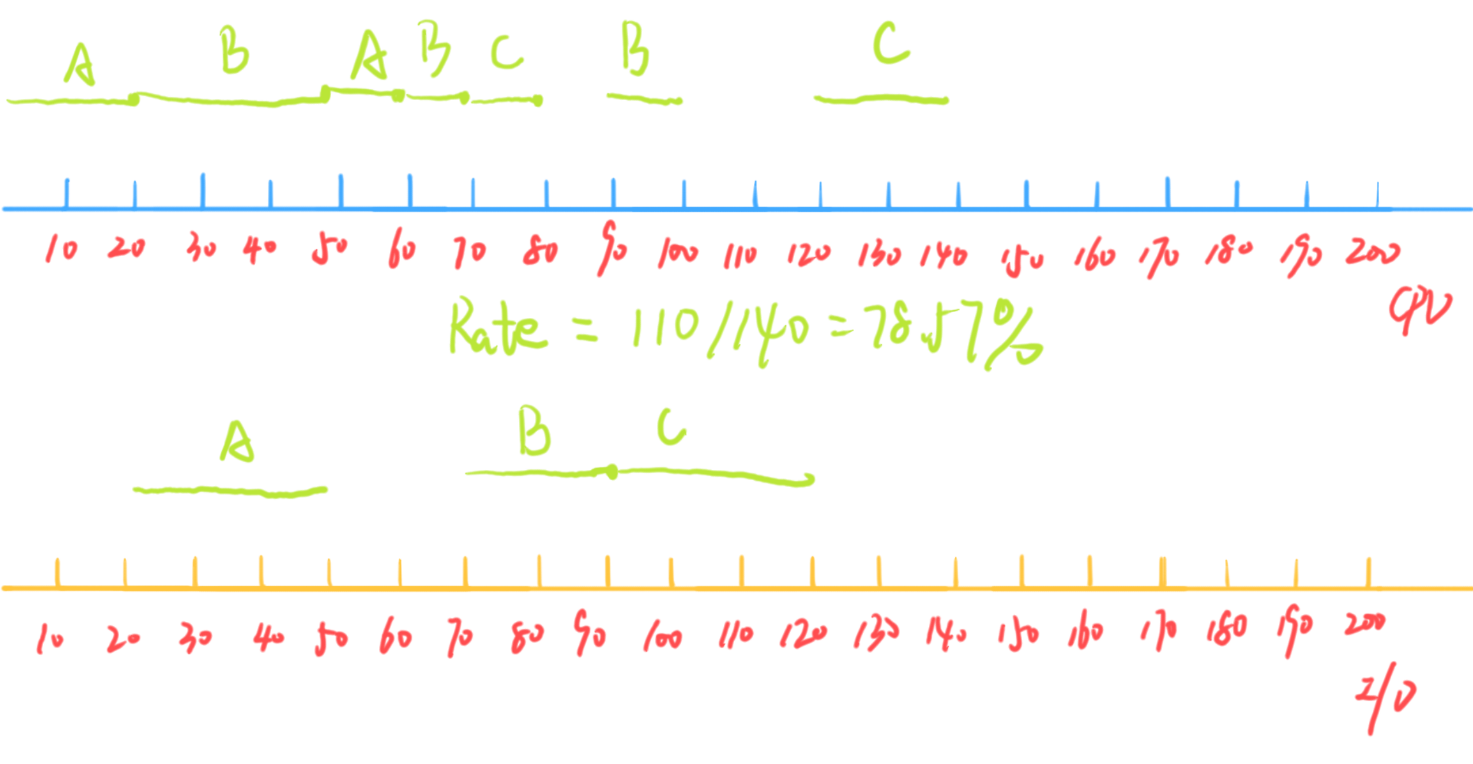 A B A B C B C
10 20 30 40 50 60 70 80 90 100 110 120 130 140 150 160 170 180 190 200
CPU
Rate = 110/140 = 78.57%
A B C
10 20 30 40 50 60 70 80 90 100 110 120 130 140 150 160 170 180 190 200
I/O